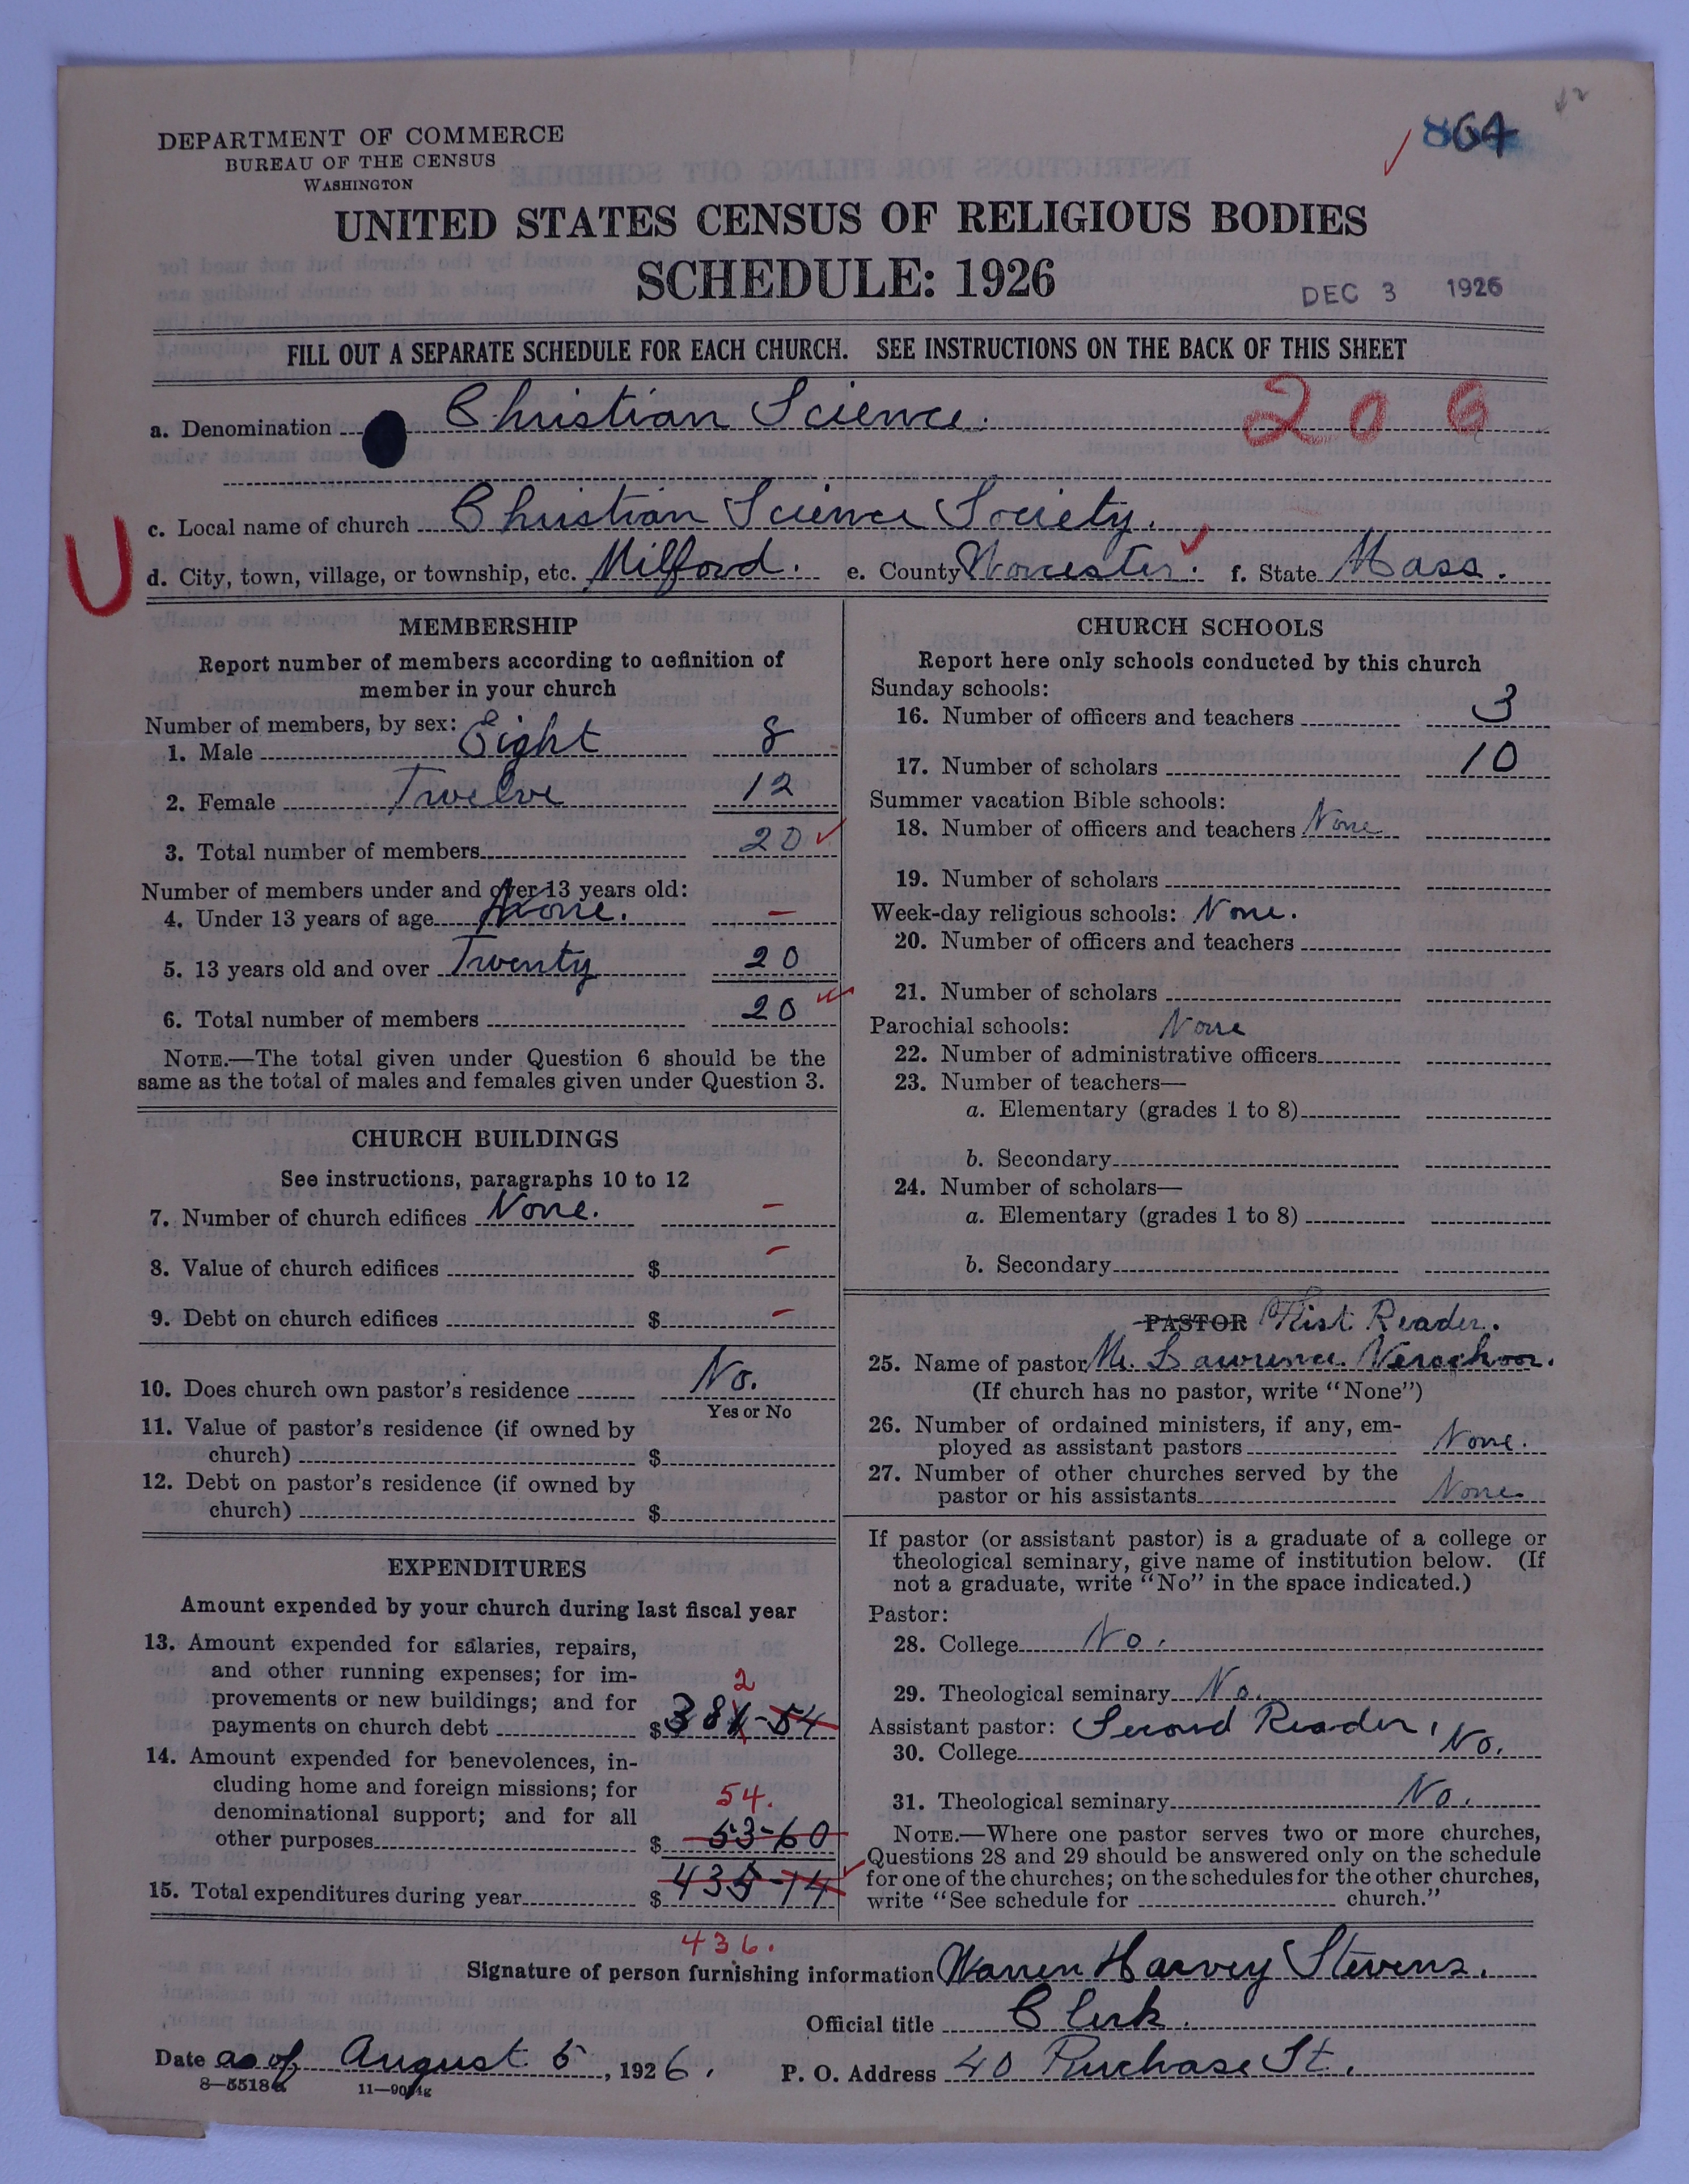 864
DEPARTMENT OF COMMERCE
BUREAU OF THE CENSUS
WASHINGTON
UNITED STATES CENSUS OF RELIGIOUS BODIES
SCHEDULE: 1926
DEC 3 1926
FILL OUT A SEPARATE SCHEDULE FOR EACH CHURCH. SEE INSTRUCTIONS ON THE BACK OF THIS SHEET
a. Denomination Christian Science. 206
c. Local name of church Christian Science Society.
U
d. City, town, village, or township, etc. Milford. e. County Worcester. f. State Mass.
MEMBERSHIP
Report number of members according to definition of
member in your church
Number of members, by sex:
1. Male Eight 8
2. Female Twelve 12
3. Total number of members 20
Number of members under and over 13 years old:
4. Under 13 years of age None. –
5. 13 years old and over Twenty 20
6. Total number of members 20
NOTE.—The total given under Question 6 should be the
same as the total of males and females given under Question 3.
CHURCH BUILDINGS
See instructions, paragraphs 10 to 12
7. Number of church edifices None. –
8. Value of church edifices $ –
9. Debt on church edifices $ –
10. Does church own pastor's residence No.
Yes or No
11. Value of pastor's residence (if owned by
church) $
12. Debt on pastor's residence (if owned by
church) $
EXPENDITURES
Amount expended by your church during last fiscal year
13. Amount expended for salaries, repairs,
and other running expenses; for im-
provements or new buildings; and for 2
payments on church debt $381-54
14. Amount expended for benevolences, in-
cluding home and foreign missions; for
denominational support; and for all 54.
other purposes $ 53-60
15. Total expenditures during year $ 435-14
436.
CHURCH SCHOOLS
Report here only schools conducted by this church
Sunday schools:
16. Number of officers and teachers 3
17. Number of scholars 10
Summer vacation Bible schools:
18. Number of officers and teachers None
19. Number of scholars
Week-day religious schools: None.
20. Number of officers and teachers
21. Number of scholars
Parochial schools: None
22. Number of administrative officers
23. Number of teachers—
a. Elementary (grades 1 to 8)
b. Secondary
24. Number of scholars—
a. Elementary (grades 1 to 8)
b. Secondary
PASTOR First Reader.
25. Name of pastor Mr. Lawrence
(If church has no pastor, write "None")
26. Number of ordained ministers, if any, em-
ployed as assistant pastors None.
27. Number of other churches served by the
pastor or his assistants None
If pastor (or assistant pastor) is a graduate of a college or
theological seminary, give name of institution below. (If
not a graduate, write "No" in the space indicated.)
Pastor:
28. College No.
29. Theological seminary No.
Assistant pastor: Second Reader,
30. College No.
31. Theological seminary No.
NOTE.—Where one pastor serves two or more churches,
Questions 28 and 29 should be answered only on the schedule
for one of the churches; on the schedules for the other churches,
write "See schedule for church."
Signature of person furnishing information Warren Harvey Stevens.
Official title Clerk.
Date as of August 5, 1926. P. O. Address 40 Purchase St.
8-5518a